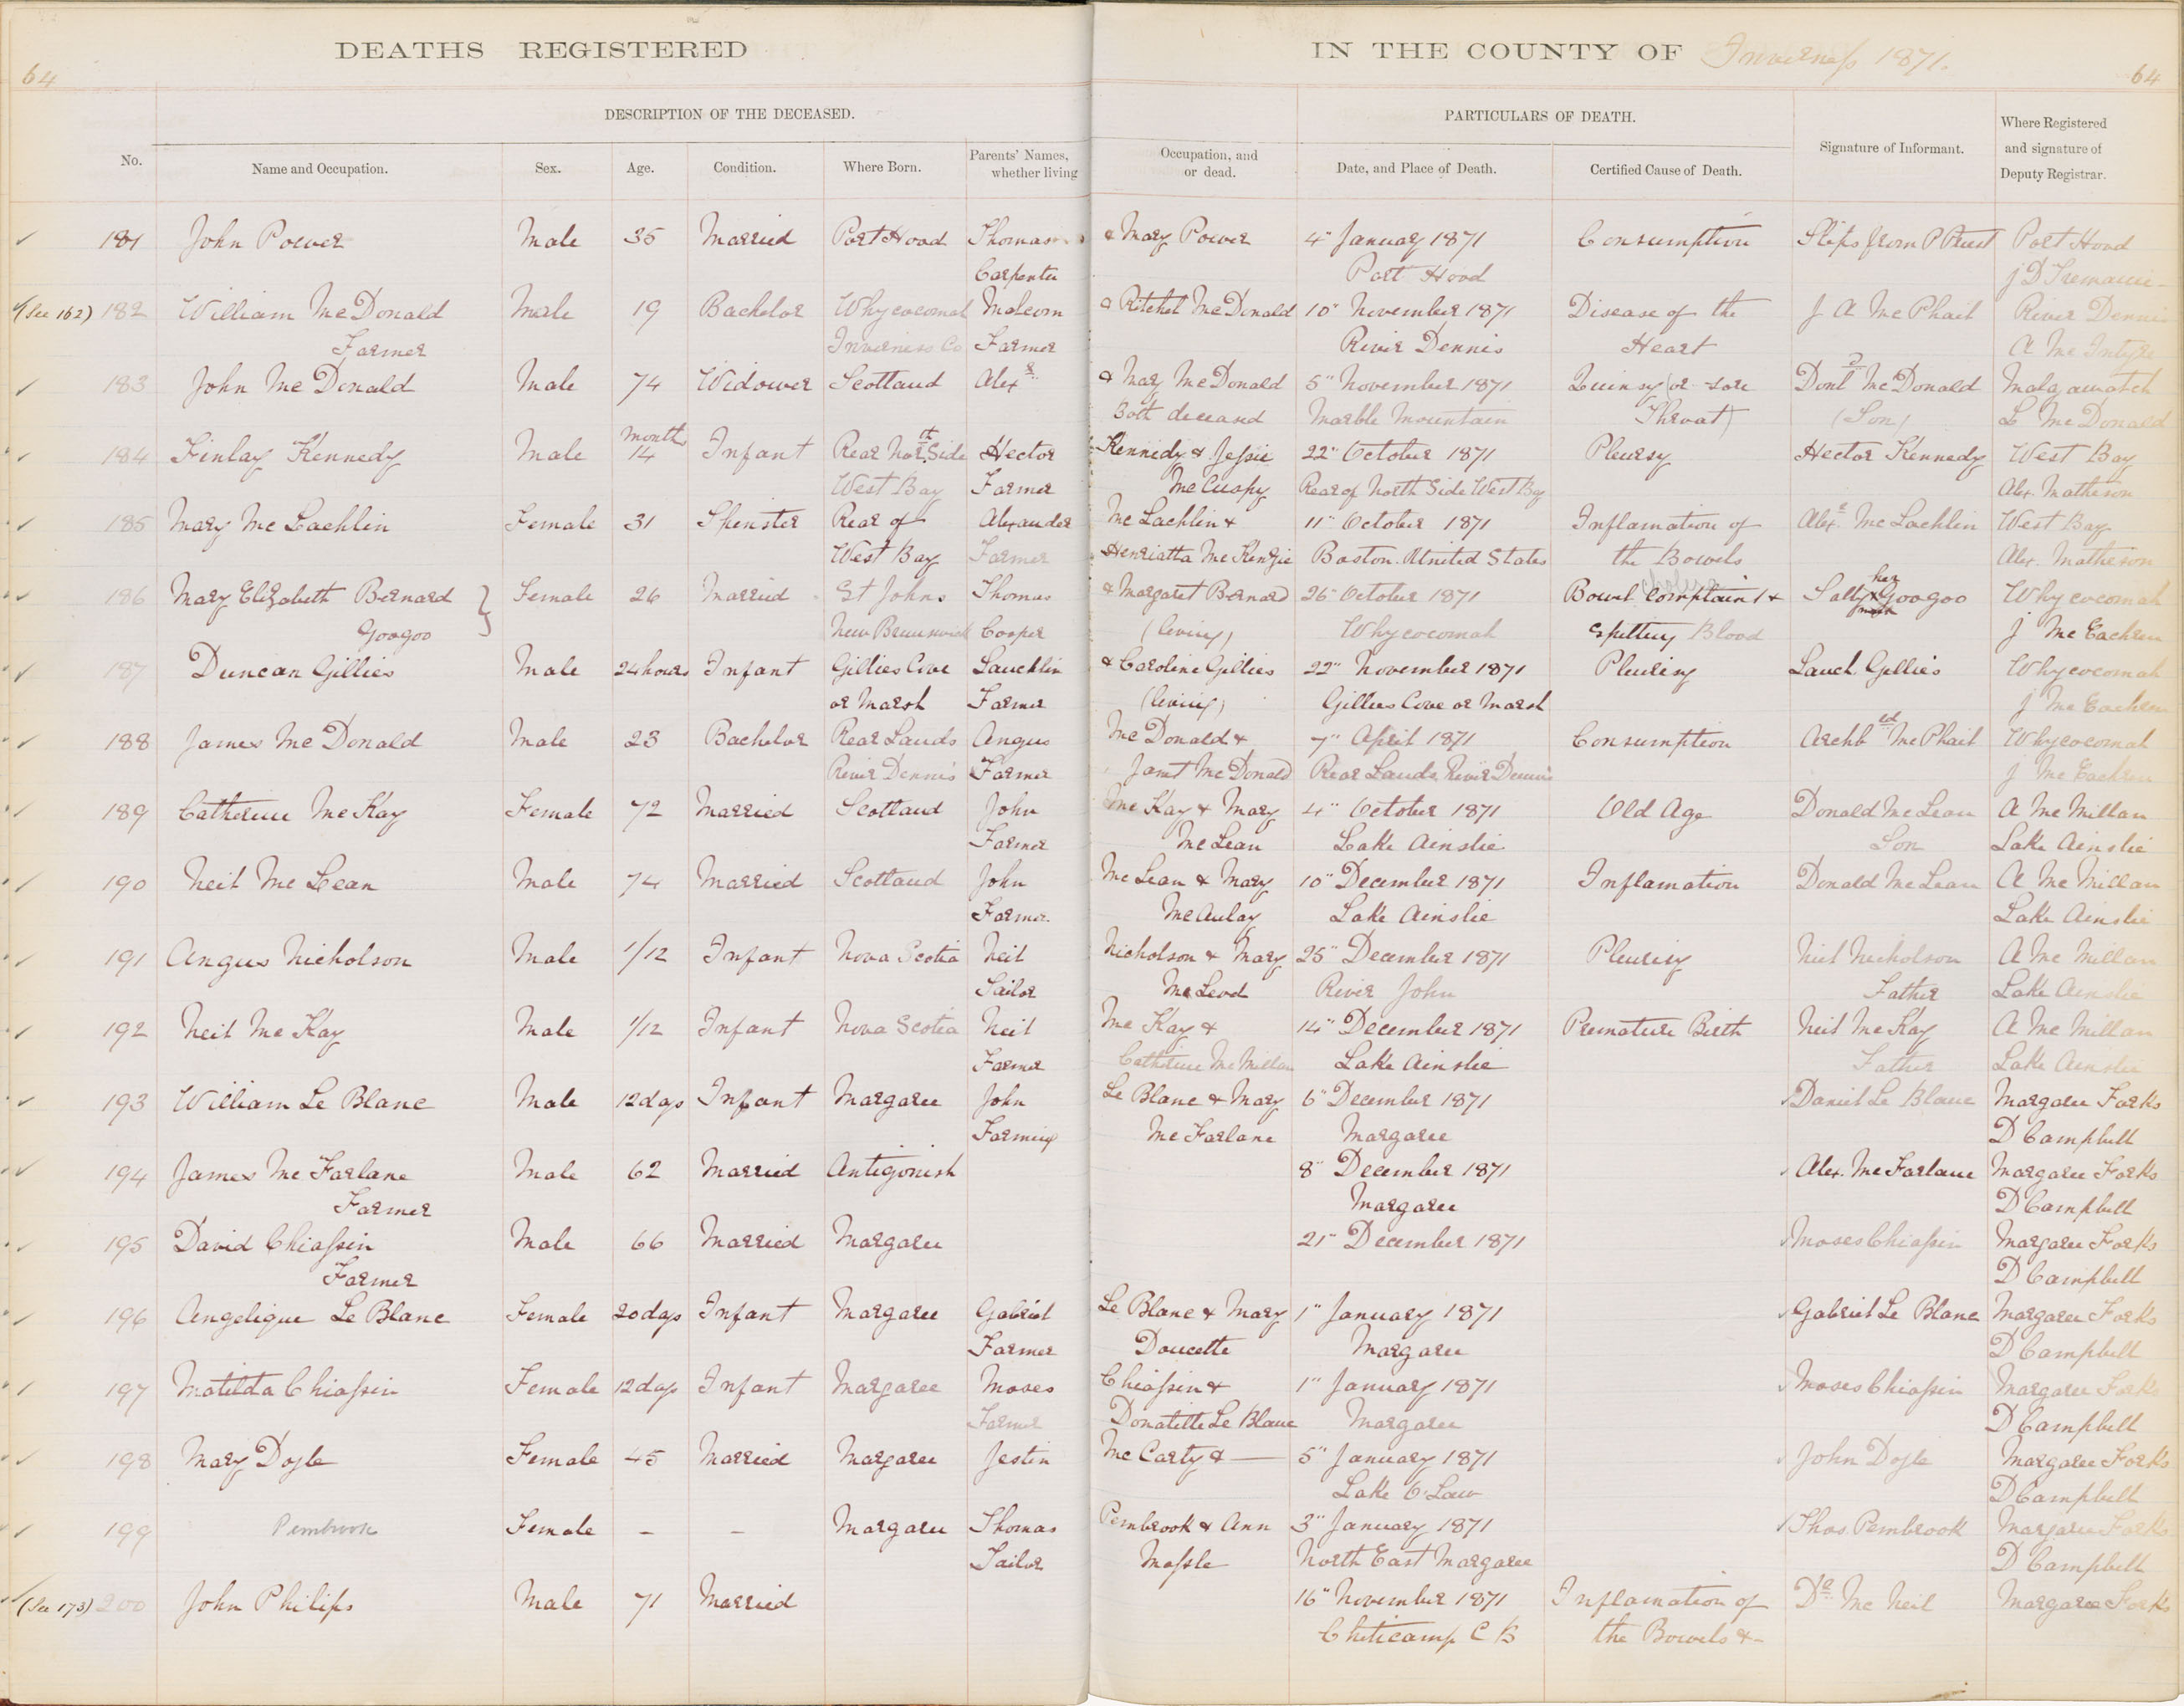 DEATHS REGISTERED IN THE COUNTY OF Inverness 1871.
64 64
DESCRIPTION OF THE DECEASED. PARTICULARS OF DEATH.
No. Name and Occupation. Sex. Age. Condition. Where Born. Parents' Names, whether living Occupation, and or dead. Date, and Place of Death. Certified Cause of Death. Signature of Informant. Where Registered and signature of Deputy Registrar.
181 John Power Male 35 Married Port Hood Thomas & Mary Power 4" January 1871 Consumption Slips from P Priest Port Hood
Carpenter Port Hood J D Tremain
(See 162) 182 William McDonald Male 19 Bachelor Whycocomah Malcom & Ritchel McDonald 10" November 1871 Disease of the J A McPhail River Dennis
Farmer Inverness Co Farmer River Dennis Heart A McIntyre
183 John McDonald Male 74 Widower Scotland Alexr & Mary McDonald 5" November 1871 Quinsy (or sore Donld McDonald Malagawatch
Both deceasd Marble Mountain Throat) (Son) L McDonald
184 Finlay Kennedy Male months 14 Infant Rear North Side Hector Kennedy & Jessie 22" October 1871 Pleursy Hector Kennedy West Bay
West Bay Farmer McCuspy Rear of North Side West Bay Alex. Matheson
185 Mary McLachlin Female 31 Spinster Rear of Alexander McLachlin & 11" October 1871 Inflamation of Alexr McLachlin West Bay
West Bay Farmer Henriatta McKenzie Boston United States the Bowels Alex. Matheson
186 Mary Elizabeth Bernard } Female 26 Married St Johns Thomas & Margaret Bernard 26" October 1871 Bowel Complaint & Sally her x mark Googoo Whycocomah
Googoo New Brunswick Cooper (living) Whycocomah Spitting Blood J McEachen
187 Duncan Gillies Male 24 hours Infant Gillies Cove Lauchlin & Caroline Gillies 22" November 1871 Pleurisy Lauch. Gillies Whycocomah
or Marsh Farmer (living) Gillies Cove or Marsh J McEachen
188 James McDonald Male 23 Bachelor Rear Lands Angus McDonald & 7" April 1871 Consumption Archbld McPhail Whycocomah
River Dennis Farmer Janet McDonald Rear Lands, River Dennis J McEachen
189 Catherine McKay Female 72 Married Scotland John McKay & Mary 4" October 1871 Old Age Donald McLean A McMillan
Farmer McLean Lake Ainslie Son Lake Ainslie
190 Neil McLean Male 74 Married Scotland John McLean & Mary 10" December 1871 Inflamation Donald McLean A McMillan
Farmer McAulay Lake Ainslie Lake Ainslie
191 Angus Nicholson Male 1/12 Infant Nova Scotia Neil Nicholson & Mary 25" December 1871 Pleurisy Neil Nicholson A McMillan
Sailor McLeod River John Father Lake Ainslie
192 Neil McKay Male 1/12 Infant Nova Scotia Neil McKay & 14" December 1871 Premature Birth Neil McKay A McMillan
Farmer Catherine McMillan Lake Ainslie Father Lake Ainslie
193 William Le Blanc Male 12 days Infant Margaree John Le Blanc & Mary 6" December 1871 Daniel Le Blanc Margaree Forks
Farming McFarlane Margaree D Campbell
194 James McFarlane Male 62 Married Antigonish 8" December 1871 Alex. McFarlane Margaree Forks
Farmer Margaree D Campbell
195 David Chiassin Male 66 Married Margaree 21" December 1871 Moses Chiassin Margaree Forks
Farmer D Campbell
196 Angelique Le Blanc Female 20 days Infant Margaree Gabriel Le Blanc & Mary 1" January 1871 Gabriel Le Blanc Margaree Forks
Farmer Doucette Margaree D Campbell
197 Matilda Chiassin Female 12 days Infant Margaree Moses Chiassin & 1" January 1871 Moses Chiassin Margaree Forks
Farmer Donatille Le Blanc Margaree D Campbell
198 Mary Doyle Female 45 Married Margaree Jestin McCarty & — 5" January 1871 John Doyle Margaree Forks
Lake O'Law D Campbell
199 Pembrook Female - - Margaree Thomas Pembrook & Ann 3" January 1871 Thos. Pembrook Margaree Forks
Tailor Massle North East Margaree D Campbell
(See 173) 200 John Philips Male 71 Married 16" November 1871 Inflamation of Dr McNeil Margaree Forks
Cheticamp C B the Bowels &-